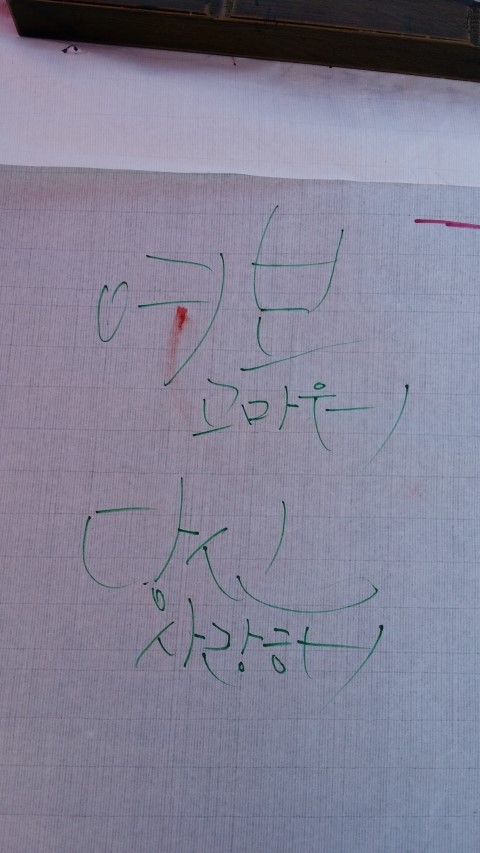 여보
고마워
당신
사랑해